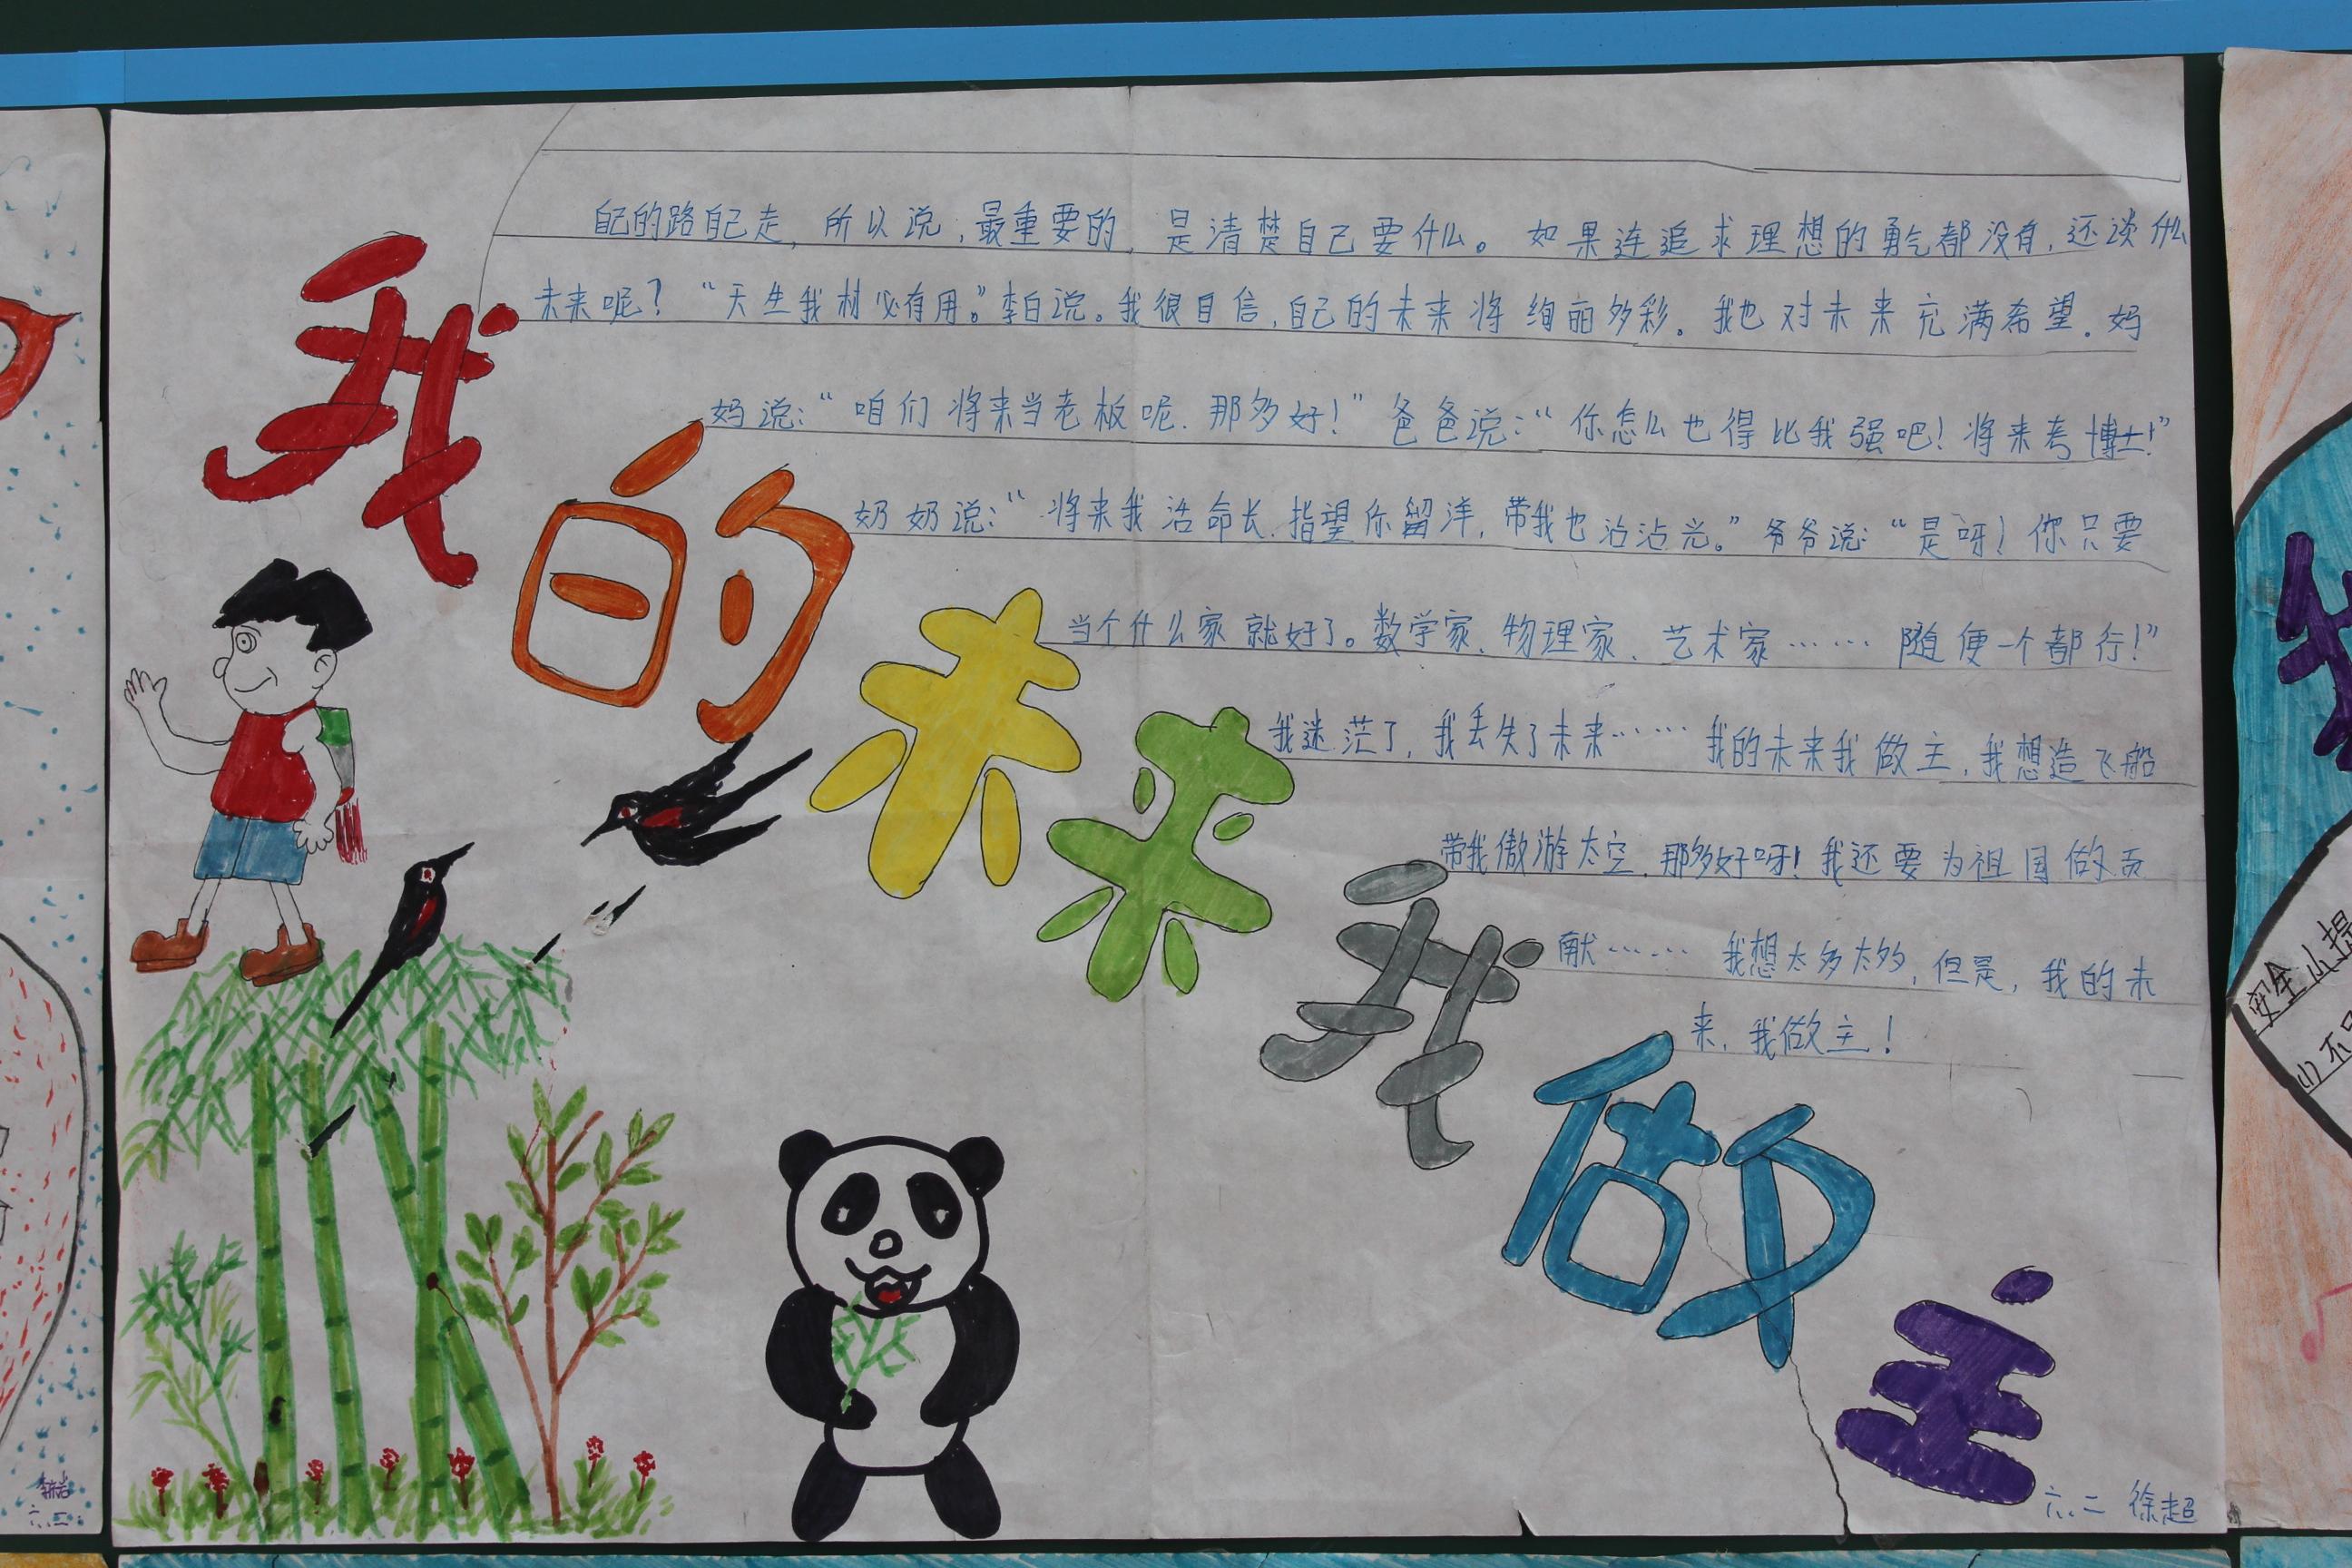 我的未来我做主
自己的路自己走，所以说，最重要的，是清楚自己要什么。如果连追求理想的勇气都没有，还谈什么
未来呢？“天生我材必有用。”李白说。我很自信，自己的未来将绚丽多彩。我也对未来充满希望．妈
妈说：“咱们将来当老板呢．那多好！”爸爸说：“你怎么也得比我强吧！将来考博士！”
奶奶说：“将来我活命长．指望你留洋，带我也沾沾光。”爷爷说：“是呀！你只要
当个什么家就好了。数学家、物理家、艺术家……随便一个都行！”
我迷茫了，我丢失了未来……我的未来我做主，我想造飞船
带我傲游太空，那多好呀！我还要为祖国做贡
献……我想太多太多，但是，我的未
来，我做主！
六、二 徐超
安全
六、二